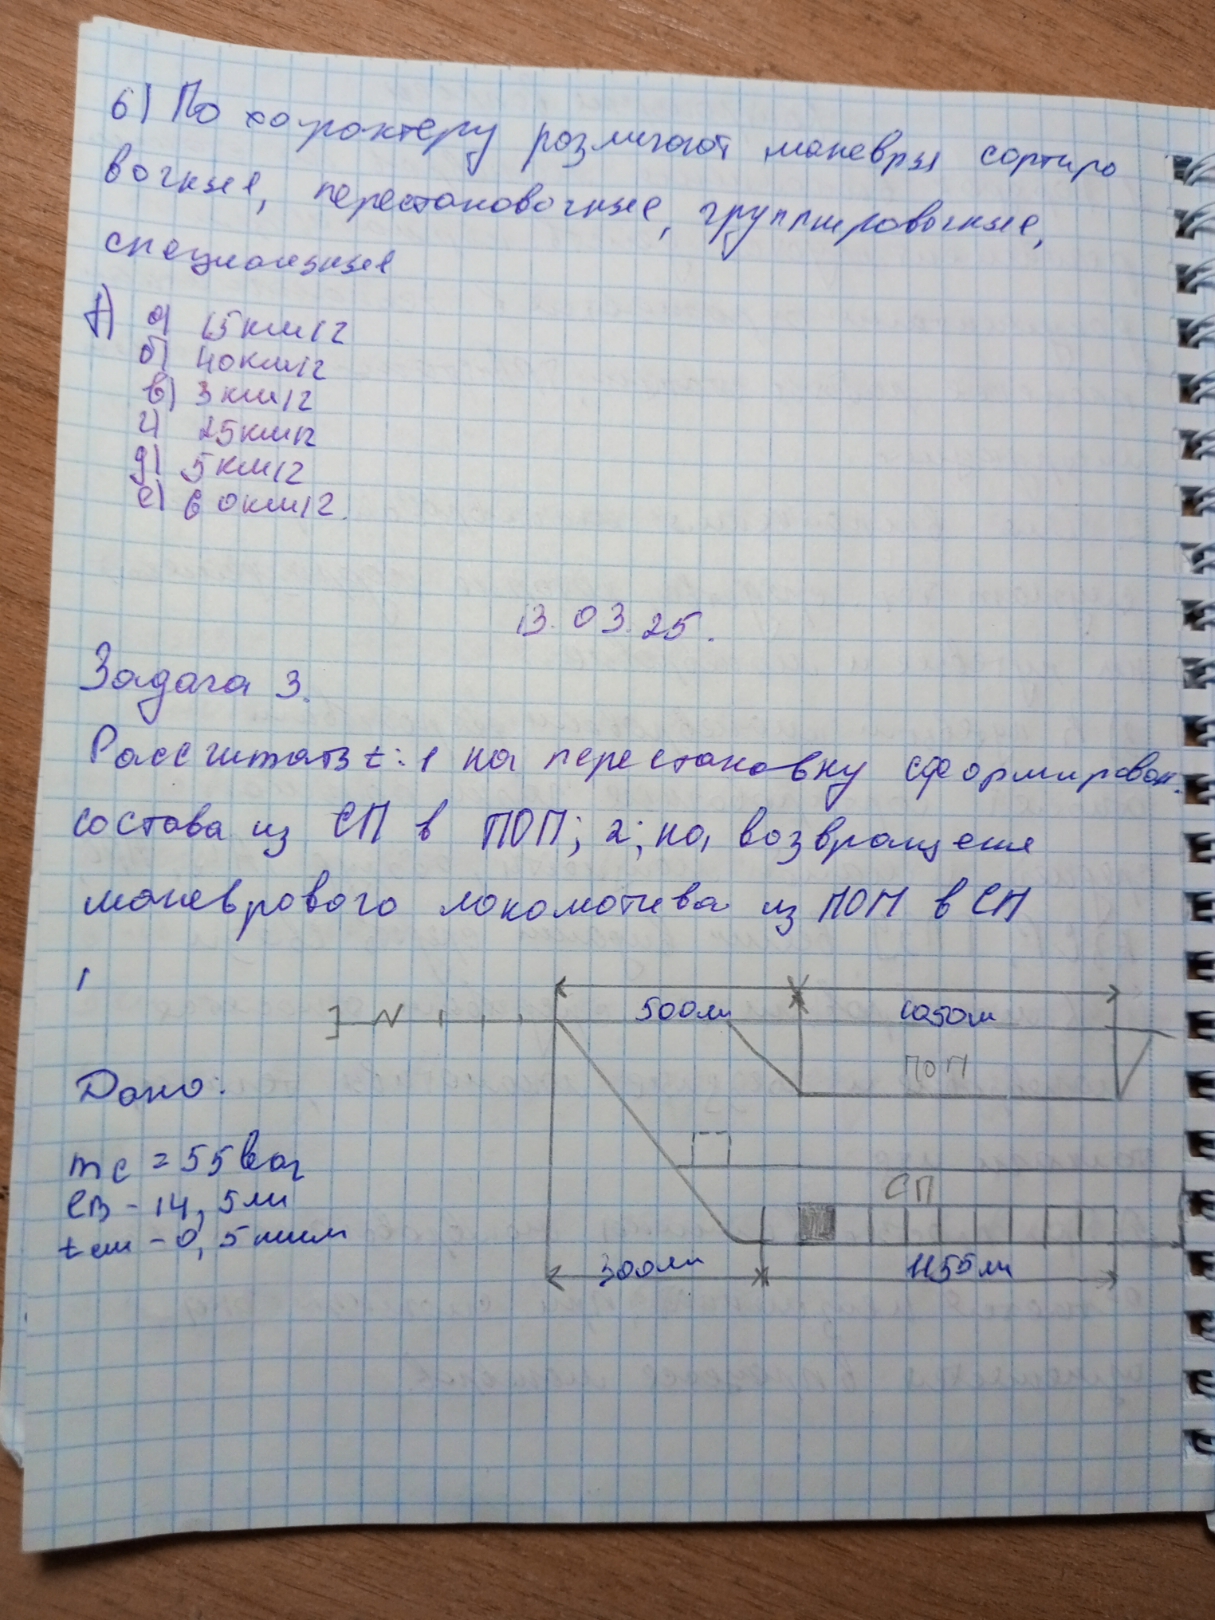 6) По характеру различают маневры сортиро
вочные, перестановочные, группировочные,
специальные
7) а) 15км/г
б) 40км/г
в) 3км/г
г) 25км/г
д) 5км/г
е) 60км/г.
13.03.25.
Задача 3.
Рассчитать t: 1 на перестановку сформирован.
состава из СП в ПОП; 2; на возвращение
маневрового локомотива из ПОП в СП
1
500м
1050м
ПОП
Дано:
mc = 55 ваг
lв - 14,5м
tсм - 0,5мин
СП
300м
1155м